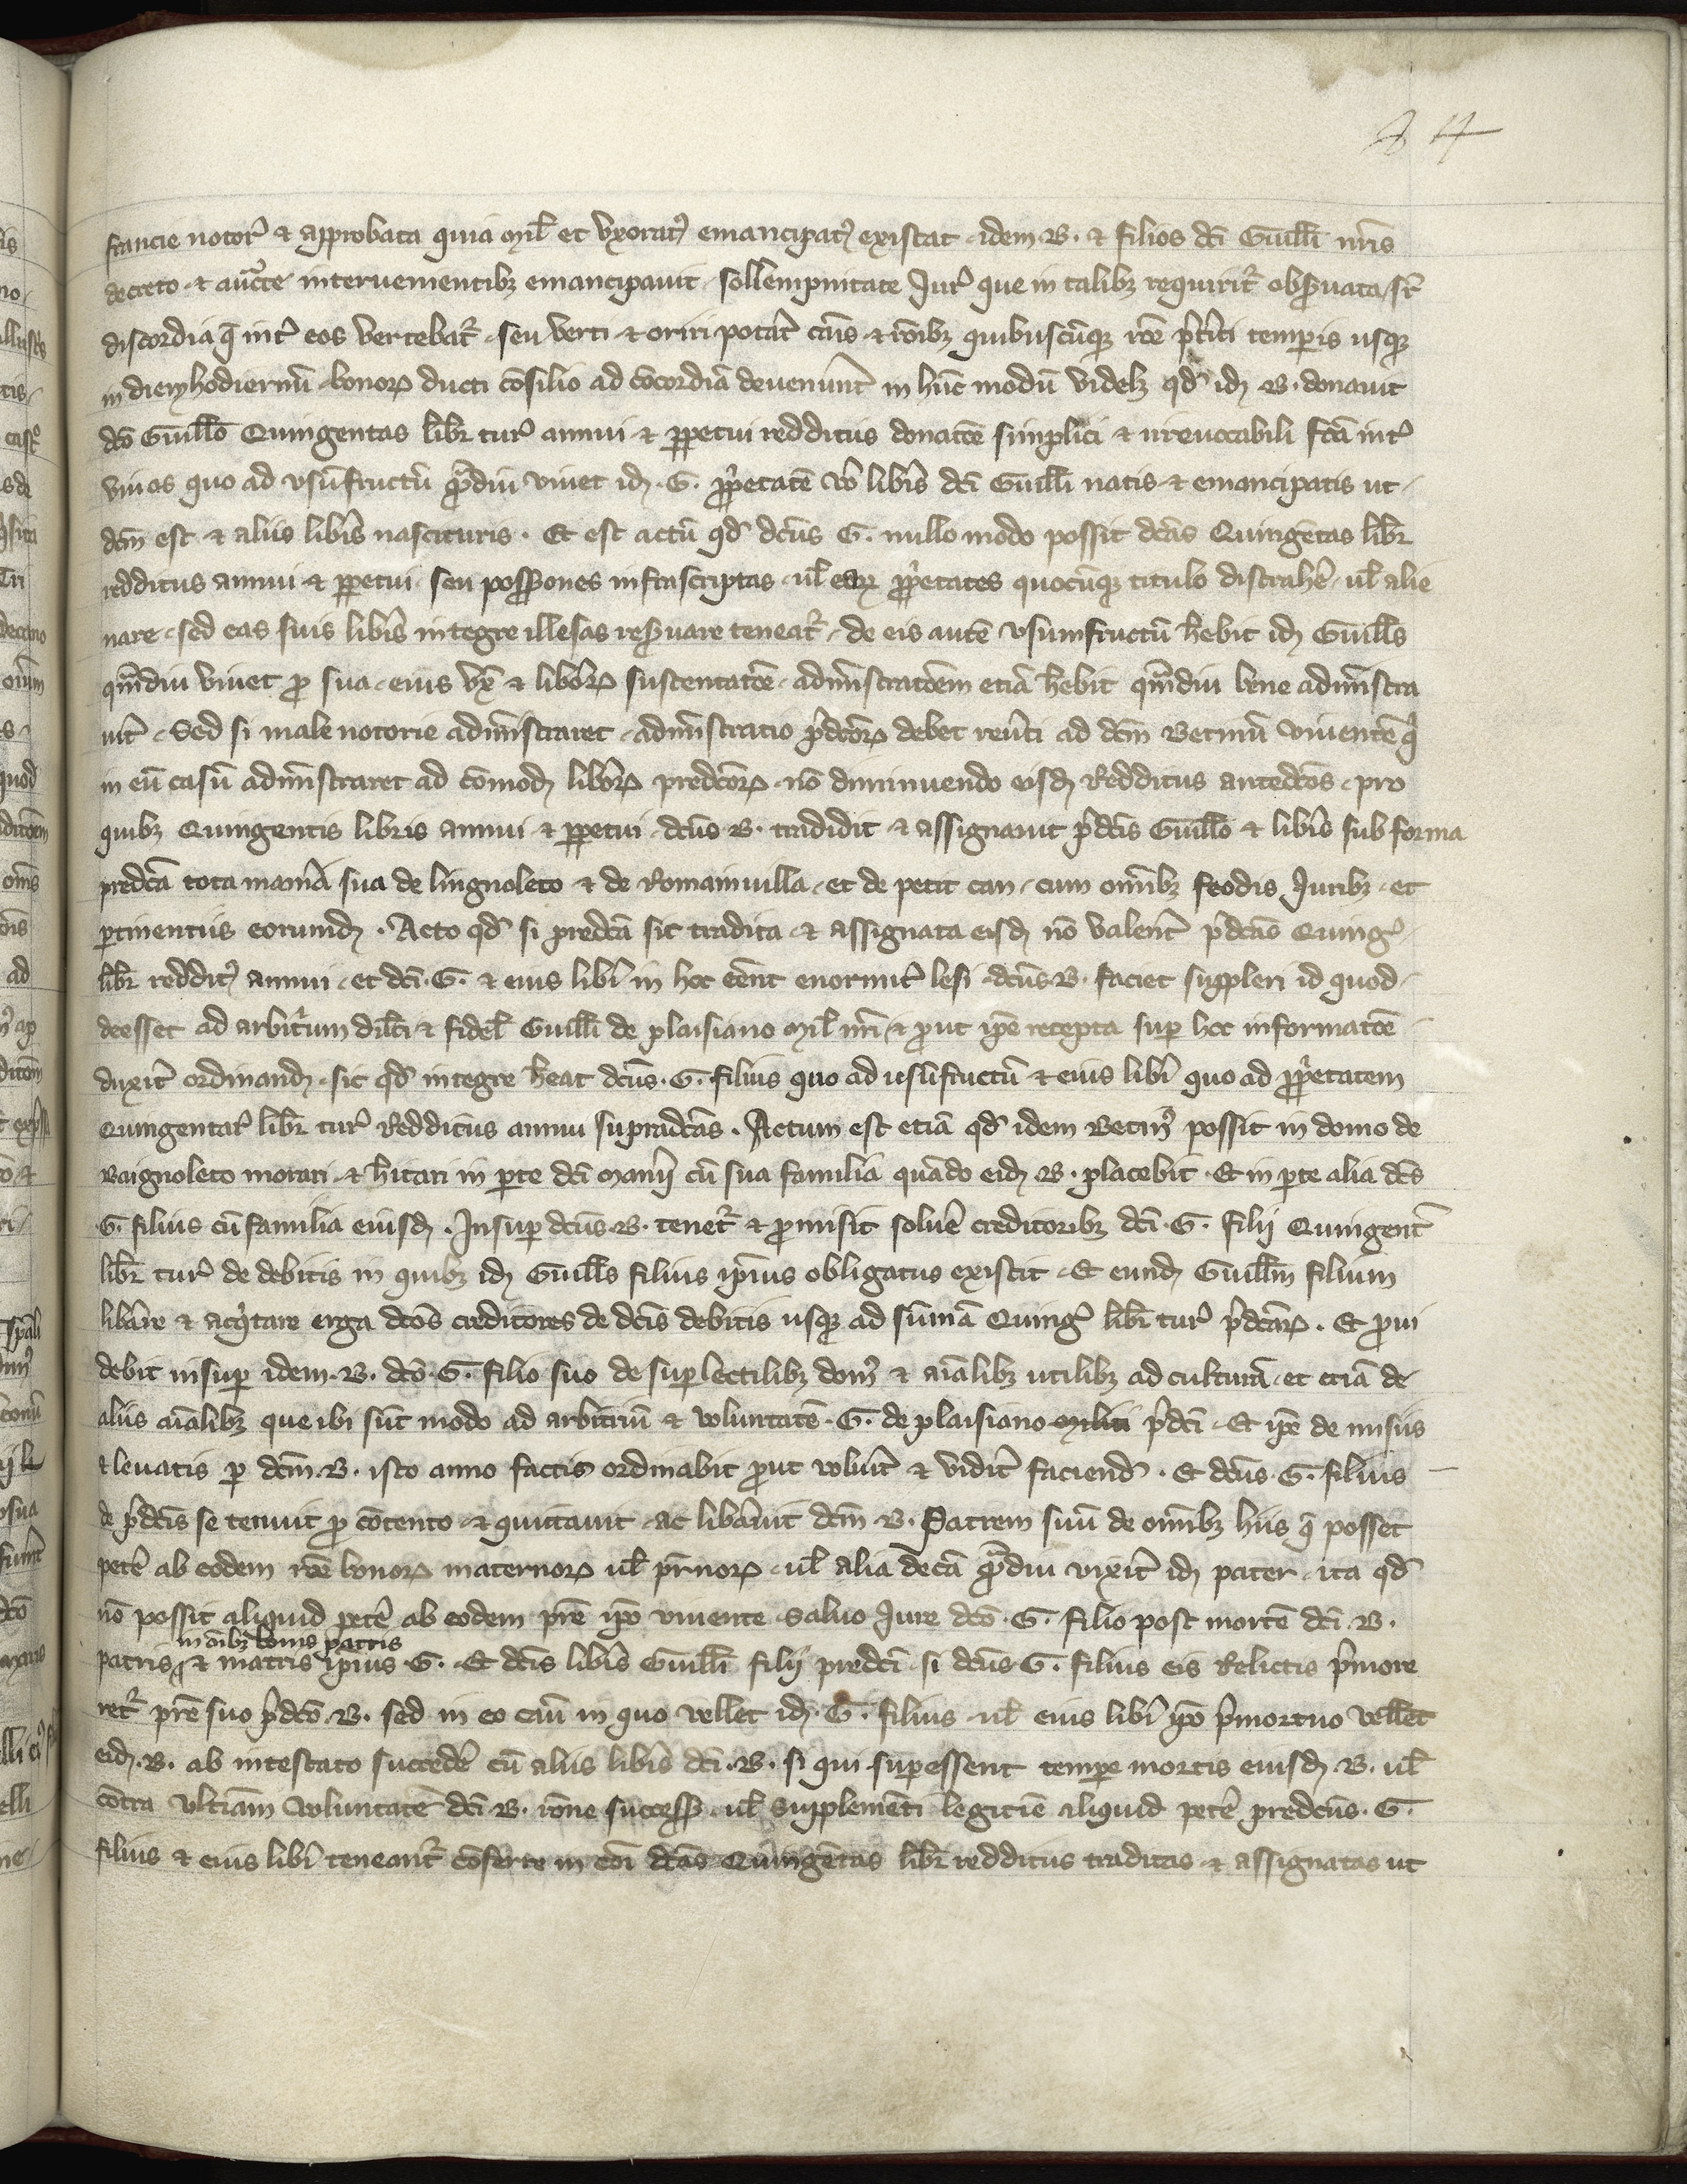 84
francie notor̄ & approbata quia mil̄ et vxoratꝰ emancipatꝰ existat idem .B. & filios dc̄i Guill̄i nr̄is
decreto & auct̄te interuenientibꝫ emancipauit sollempnitate Iur̄ que in talibꝫ requirit᷑ obseruata, sr̄
discordia q̄ int̄ eos vertebat᷑ seu verti & oriri potat̄ cāis & rōibꝫ quibuscūqꝫ rōe p̄t̄iti temporis usqꝫ
in diem hodiernū bonoꝝ ducti cōsilio ad cōcordiā deuenūnt in hūc modū videlꝫ qd̄ idꝫ .B. donauit
dc̄o Guill̄o Quingentas libr̄ tur̄ annui & ꝑpetui redditus donatōe simplici & irreuocabili fc̄a int̄
viuos quo ad vsūfructū q̄ᵃdiu viuet idꝫ .G. ꝓp̄etatē vō lib̄is dc̄i Guill̄i natis & emancipatis ut
dc̄m est & aliis lib̄is nascituris. Et est actū qd̄ dc̄us G. nullo modo possit dc̄as Quingētas libr̄
redditus annui & ꝑpetui seu possessiones infrascriptas ul̄ eaꝝ ꝓp̄etates quocūqꝫ titulo distrahē ul̄ alie
nare sed eas suis lib̄is integre illesas reseruare teneat᷑ de eis autē vsumfructū hēbit idꝫ Guill̄s
qm̄diu viuet ꝓ sua eius vx̄ & lib̄oꝝ sustentatōe adm̄istratōem etiā hēbit qm̄diu bene adm̄istra
uit̄. Sed si male notorie adm̄istraret adm̄istratio p̄dc̄oꝝ debet reū̄ti ad dc̄m Betinū viuentē q̄
in eū casū adm̄istraret ad cōmodꝫ lib̄oꝝ predc̄oꝝ nō diminuendo eisdꝫ Redditus antedc̄os pro
quibꝫ Quingentis libris annui & ꝑpetui dc̄us B. tradidit & assignauit p̄dc̄is Guill̄o & lib̄is sub forma
predc̄a tota man̄ia sua de lingnoleto & de Romainuilla et de petit can cum om̄ibꝫ feodis Iuribꝫ et
ꝑtinentiis eorumdꝫ. Acto qd̄ si predc̄a sic tradita & assignata eisdꝫ nō valent̄ p̄dc̄as Quinḡ
libr̄ redditꝰ annui et dc̄i .G. & eius lib̄i in hoc eēnt enormit̄ lesi dc̄us .B. faciet suppleri id quod
deesset ad arbit̄um dil̄ci & fidel̄ Guill̄i de plaisiano mil̄ nr̄i & prout ip̄e recepta suꝑ hoc informatōe
duxit̄ ordinandꝫ sic qd̄ integre hēat dc̄us .G. filius quo ad usūfructū & eius lib̄i quo ad ꝓp̄etatem
Quingentar̄ libr̄ tur̄ Redditus annui supradc̄as. Actum est etiā qd̄ idem Betinꝰ possit in domo de
Baignoleto morari & hītari in ꝑte dc̄i man̄ij cū sua familia quādo eidꝫ .B. placebit. Et in ꝑte alia dc̄s
.G. filius cū familia eiusdꝫ. Insuꝑ dc̄us .B. tenet᷑ & promisit soluē creditoribꝫ dc̄i .G. filij Quingent̄
libr̄ tur̄ de debitis in quibꝫ idꝫ Guill̄s filius ip̄ius obligatus existit. Et eundꝫ Guill̄m filium
lib̄are & acq̄tare erga dc̄os creditores de dc̄is debitis usqꝫ ad sūmā Quinḡ libr̄ tur̄ p̄dc̄aꝝ. Et proui
debit insuꝑ idem .B. dc̄o .G. filio suo de suꝑlectilibꝫ domꝰ & aīalibꝫ utilibꝫ ad culturā et etiā de
aliis aīalibꝫ que ibi sūt modo ad arbitriū & voluntatē .G. de plaisiano militi p̄dc̄i. Et ip̄e de misiis
& leuatis ꝑ dc̄m .B. isto anno factis ordinabit prout voluit̄ & vidit̄ faciend̄. Et dc̄us .G. filius
de p̄dc̄is se tenuit ꝓ cōtento & quittauit ac lib̄auit dc̄m .B. Patrem suū de om̄ibꝫ hiis q̄ posset
petē ab eodem rōe bonoꝝ maternoꝝ ul̄ pr̄noꝝ ul̄ alia de cā q̄ᵃdiu vixit̄ idꝫ pater ita qd̄
nō possit aliquid petē ab eodem pr̄e ip̄o viuente saluo Iure dc̄o .G. filio post mortē dc̄i .B.
in oībꝫ bonis patris
patris & matris ip̄ius .G. Et dc̄is lib̄is Guill̄i filij predc̄i si dc̄us .G. filius eis Relictis p̄more
ret᷑ pr̄e suo p̄dc̄o .B. sed in eo casū in quo vellet idꝫ .G. filius ul̄ eius lib̄i ip̄o p̄mortuo vellēt
eidꝫ .B. ab intestato succedē cū aliis lib̄is dc̄i .B. si qui suꝑessent tempore mortis eiusdꝫ .B. ul̄
cōtra vltīam voluntatē dc̄i .B. rōne success̄ ul̄ supplemēti legitīe aliquid petē predc̄us .G.
filius & eius lib̄i teneant᷑ cōferre in cōi dc̄as Quingētas libr̄ redditus traditas & assignatas ut